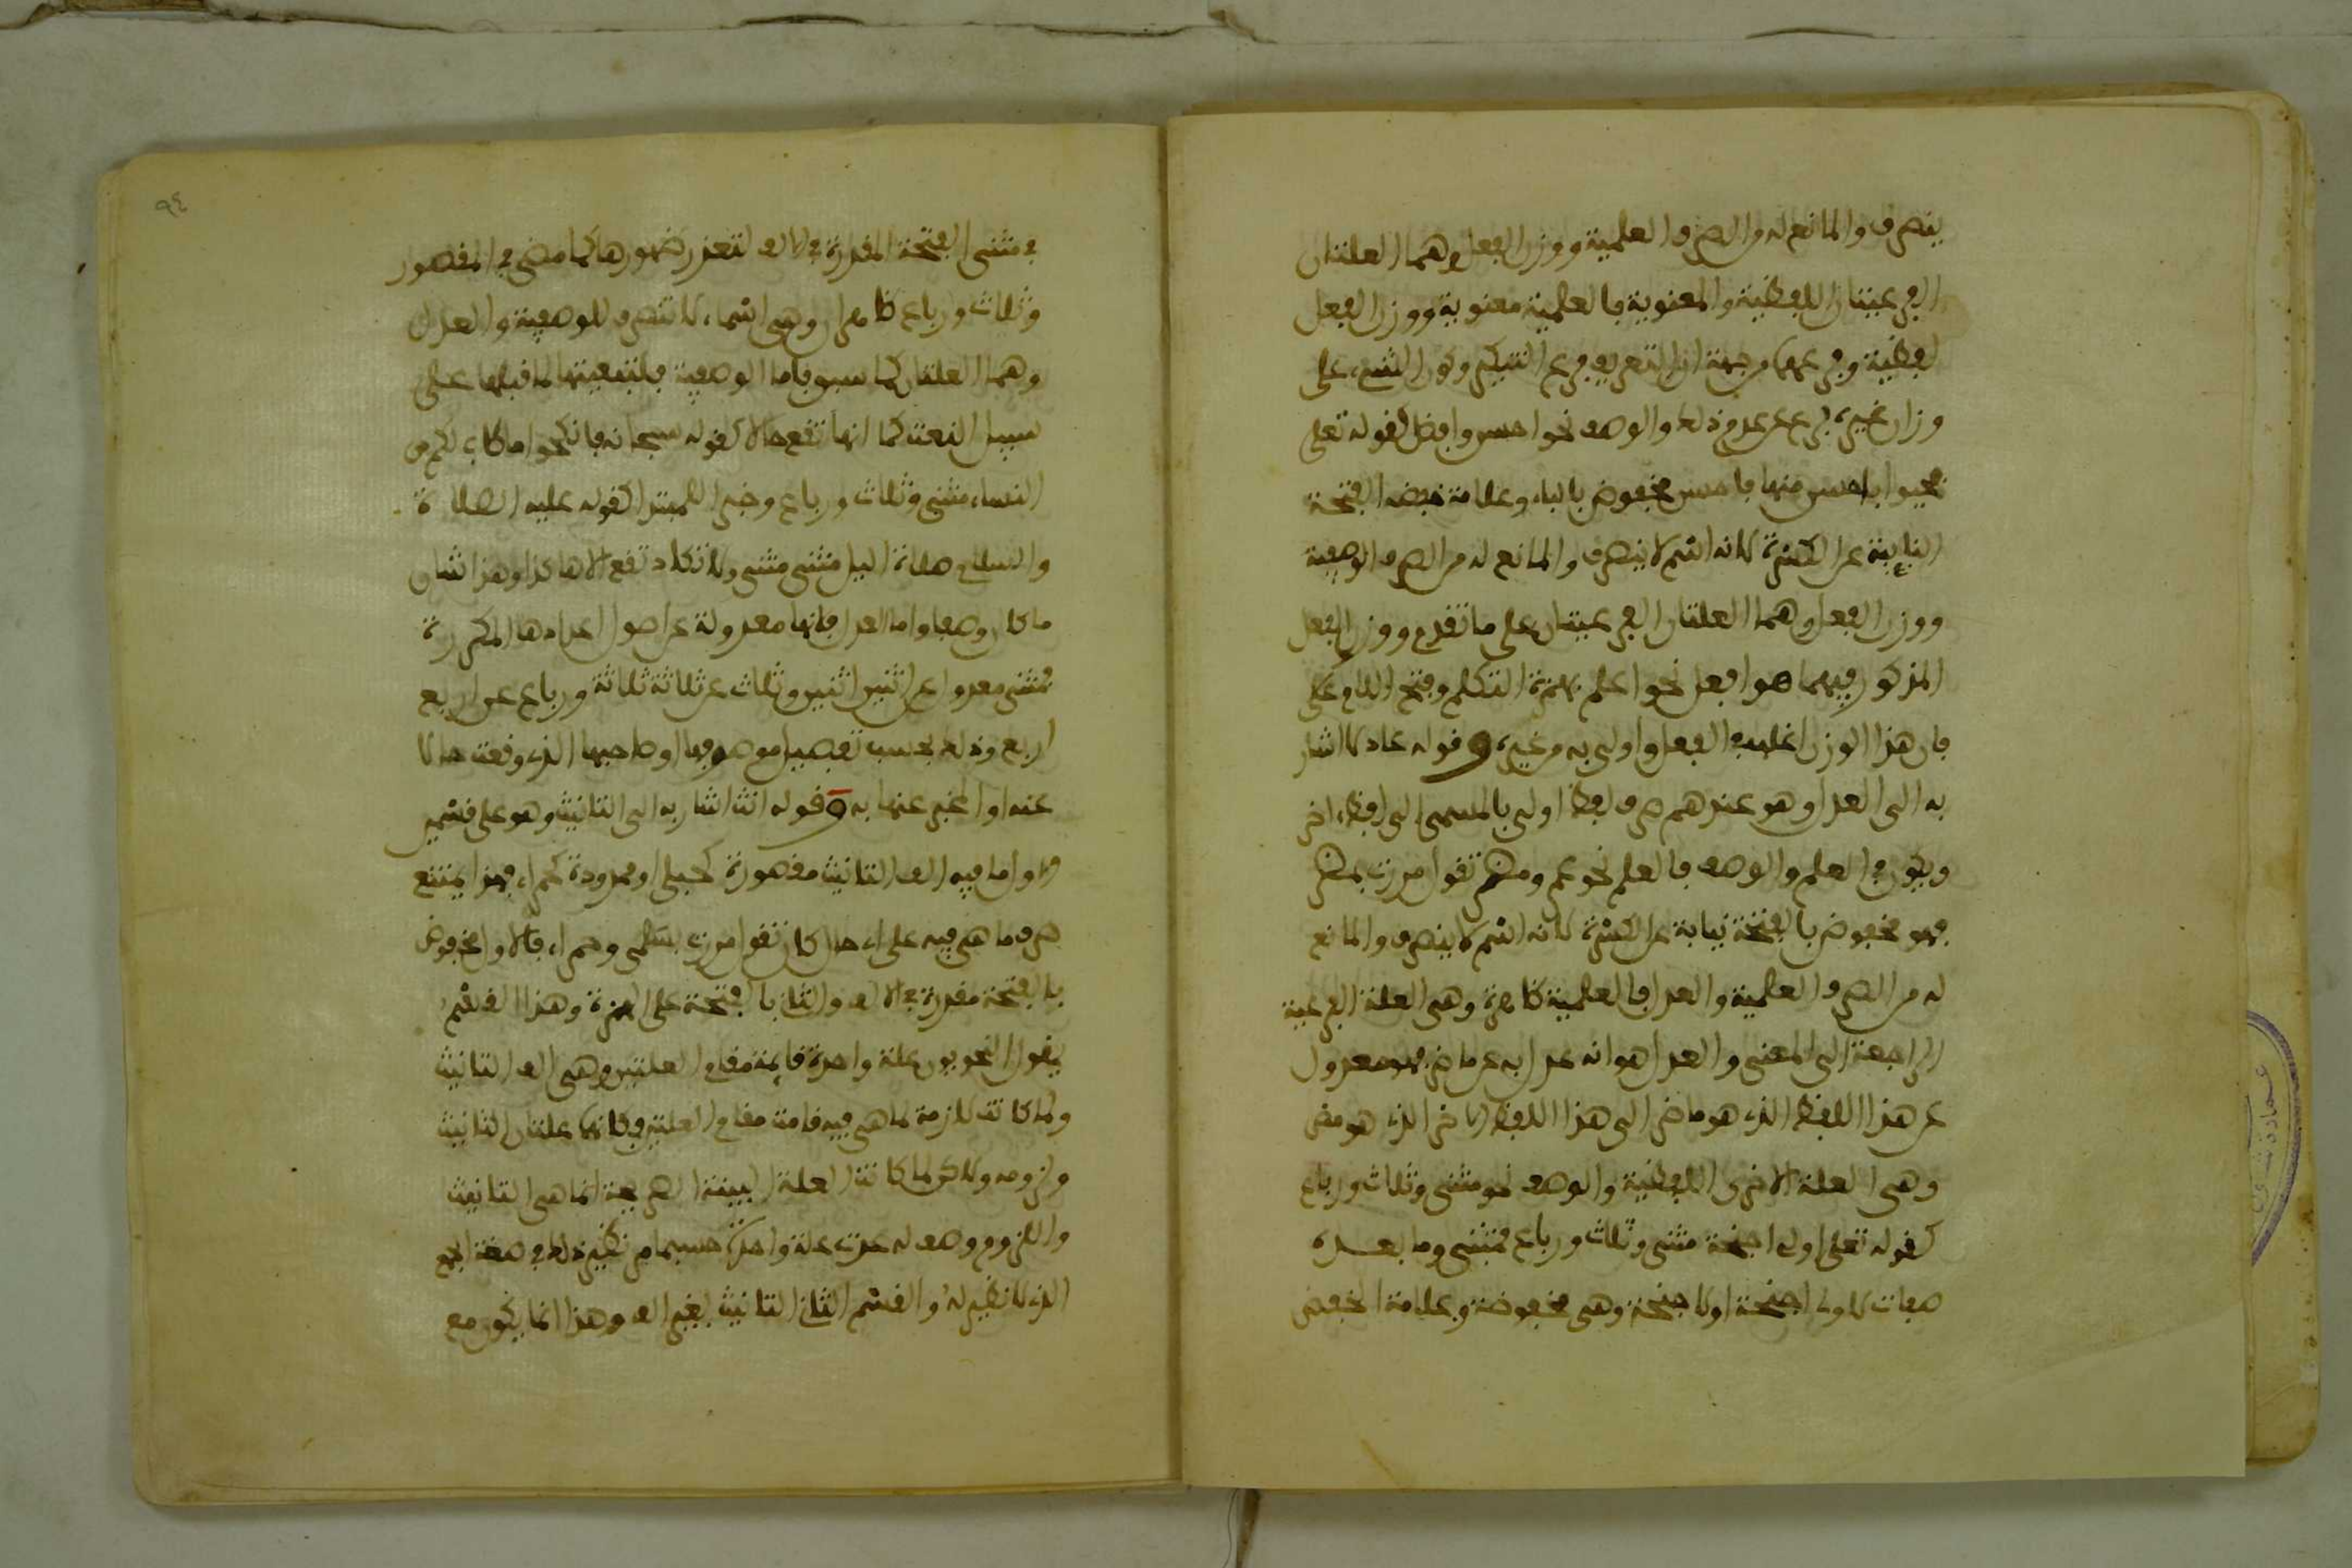 ينصرف والمانع له من الصرف العلمية ووزن الفعل وهما العلتان
الفرعيتان اللفظية والمعنوية فالعلمية معنوية ووزن الفعل
لفظية وفرعيتهما من جهة ان التعريف فرع التنكير وكون الشيء على
وزان غيره فرع عن عدم ذلك والوصف نحو احسن وافضل كقوله تعلى
فحيوا باحسن منها فاحسن مخفوض بالباء وعلامة خفضه الفتحة
النايبة عن الكسرة لانه اسم لا ينصرف والمانع له من الصرف الوصفية
ووزن الفعل وهما العلتان الفرعيتان على ما تقدم ووزن الفعل
المذكور فيهما هو افعل نحو اعلم بهمزة التكلم وفتح اللام
فان هذا الوزن اغلب في الفعل واولى به من غيره وقوله عادلا اشار
به الى العدل وهو عندهم صرف لفظ اولى بالمسمى الى لفظ اخر
ويكون في العلم والوصف فالعلم نحو عمر ومضر تقول مررت بمضر
فهو مخفوض بالفتحة نيابة عن الكسرة لانه اسم لا ينصرف والمانع
له من الصرف العلمية والعدل فالعلمية ظاهرة وهي العلة الفرعية
الراجعة الى المعنى والعدل هو انه عدل به عن ماضر فهو معدول
عن هذا اللفظ الذي هو ماضر الى هذا اللفظ الاخر الذي هو مضر
وهي العلة الاخرى اللفظية والوصف نحو مثنى وثلاث ورباع
كقوله تعلى اولي اجنحة مثنى وثلاث ورباع فمثنى وما بعده
صفات لاولي اجنحة او لاجنحة وهي مخفوضة وعلامة الخفض
في مثنى الفتحة المقدرة في الالف لتعذر ظهورها كما مضى في المقصور
وثلاث ورباع ظاهران وهي اسماء لا تنصرف للوصفية والعدل
وهما العلتان كما سبق فاما الوصفية فلتبعيتها لما قبلها على
سبيل النعت كما انها تقع حالا كقوله سبحانه فانكحوا ما طاب لكم من
النساء مثنى وثلاث ورباع وخبرا للمبتدا كقوله عليه الصلاة
والسلام صلاة اليل مثنى مثنى ولا تكاد تقع الا هاكذا وهذا شان
ما كان وصفا واما العدل فانها معدولة عن اصول اعدادها المكررة
فمثنى معدول عن اثنين اثنين وثلاث عن ثلاثة ثلاثة ورباع عن اربع
اربع وذلك بحسب تفصيل موصوفها او صاحبها الذي وقعت حالا
عنه او المخبر عنها به وقوله انث اشار به الى التانيث وهو على قسمين
اما فيه الف التانيث مقصورة كحبلى او ممدودة كحمراء فهذا يمتنع
صرف ما هي فيه على اي حال كان تقول مررت بسلمى وحمراء فالاول مخفوض
بالفتحة مقدرة في الالف والثاني بالفتحة على الهمزة وهذا القسم
يقول النحويون علة واحدة قايمة مقام العلتين وهي الف التانيث
ولما كانت لازمة لما هي فيه قامت مقام العلتين فكانها علتان التانيث
ولزومه ولاكن لما كانت العلة البينة الصريحة انما هي التانيث
واللزوم وصف له عدت علة واحدة حسبما مر نظير ذلك في صفة الجمع
الذي لا نظير له والقسم الثاني التانيث بغير الف وهذا انما يكون مع
٩٤